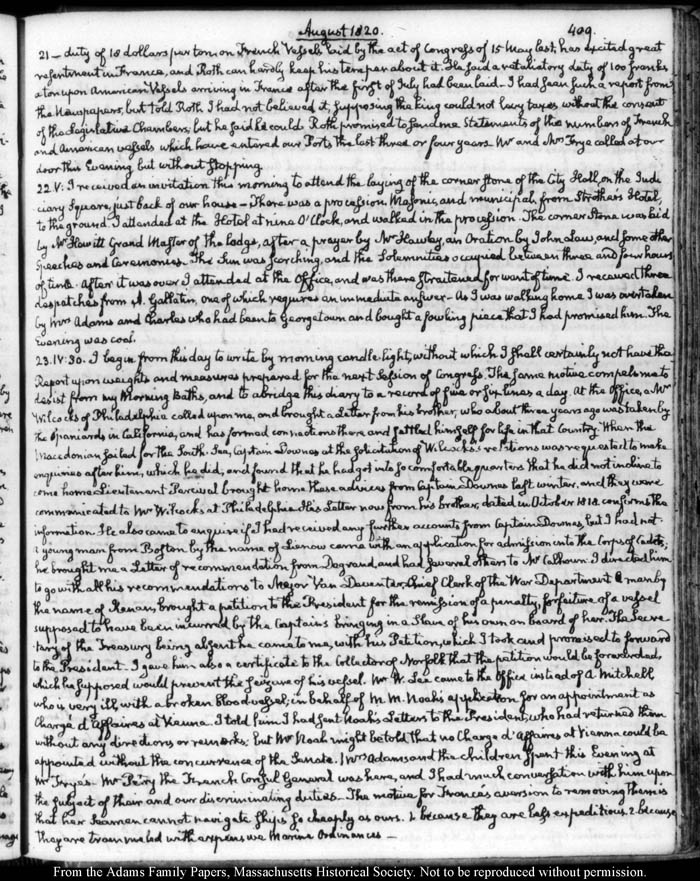 August 1820.
409.
21 — duty of 18 dollars per ton on French Vessels laid by the act of Congress of 15 May last, has excited great
resentment in France, and Roth can hardly keep his temper about it. He said a retaliatory duty of 100 franks
a ton upon American Vessels arriving in France after the first of July had been laid — I had seen such a report from
the Newspapers, but told Roth I had not believed it, supposing the King could not levy taxes without the consent
of the Legislative Chambers; but he said he could. Roth promised to send me Statements of the numbers of French
and American vessels which have entered our Ports the last three or four years. Mr and Mrs Frye called at our
door this Evening but without stopping.
22. V: I received an invitation this morning to attend the laying of the corner stone of the City Hall, on the Judi-
ciary Square, just back of our house — There was a procession Masonic, and municipal, from Strother's Hotel,
to the ground. I attended at the Hotel at nine O'Clock, and walked in the procession. The corner Stone was laid
by Mr Hewitt Grand Master of the Lodge, after a prayer by Mr Hawley, an Oration by John Law, and some other
Speeches and Ceremonies. The Sun was scorching, and the Solemnities occupied between three and four hours
of time. After it was over I attended at the Office, and was there straitened for want of time. I received three
despatches from A. Gallatin, one of which requires an immediate answer — As I was walking home I was overtaken
by Mrs Adams and Charles who had been to Georgetown and bought a fowling piece that I had promised him. The
Evening was cool.
23. IV: 30. I begin from this day to write by morning candle-light, without which I shall certainly not have the
Report upon weights and measures prepared for the next Session of Congress. The same motive compels me to
desist from my Morning Baths, and to abridge this diary to a record of five or six lines a day. At the Office, a Mr
Wilcocks of Philadelphia called upon me, and brought a Letter from his brother, who about three years ago was taken by
the Spaniards in California, and has formed connections there and settled himself for life in that Country. When the
Macedonian sailed for the South-Sea, Captain Downes at the solicitation of Wilcocks's relations was requested to make
enquiries after him, which he did, and found that he had got into so comfortable quarters that he did not incline to
come home. Lieutenant Percival brought home these advices from Captain Downes last winter, and they were
communicated to Mr Wilcocks at Philadelphia. His Letter now from his brother, dated in October 1818. confirms the
information. He also came to enquire if I had received any further accounts from Captain Downes, but I had not.
A young man from Boston by the name of Lienow came with an application for admission into the Corps of Cadets;
he brought me a Letter of recommendation from Degrand, and had several others to Mr Calhoun. I directed him
to go with all his recommendations to Major Van Deventer, Chief Clerk of the War Department. A man by
the name of brought a petition to the President for the remission of a penalty, forfeiture of a vessel
supposed to have been incurred by the Captain's bringing in a Slave of his own on board of her. The Secre-
tary of the Treasury being absent he came to me, with his Petition, which I took and promised to forward
to the President. I gave him also a certificate to the Collector of Norfolk that the petition would be forwarded,
which he supposed would prevent the seizure of his vessel. Mr W. Lee came to the Office instead of A. Mitchell
who is very ill, with a broken blood vessel; in behalf of M. M. Noah's application for an appointment as
Chargé d'Affaires at Vienna. I told him I had sent Noah's Letters to the President, who had returned them
without any directions or remarks; but Mr Noah might be told that no Chargé d'affaires at Vienna could be
appointed without the concurrence of the Senate. Mrs Adams and the children spent this Evening at
Mr Frye's. Mr Petry the French Consul General was here, and I had much conversation with him upon
the subject of their and our discriminating duties. The motive for France's aversion to removing them is
that her Seamen cannot navigate Ships so cheaply as ours. 1. because they are less expeditious. 2. because
they are trammeled with expensive Marine Ordinances —
From the Adams Family Papers, Massachusetts Historical Society. Not to be reproduced without permission.